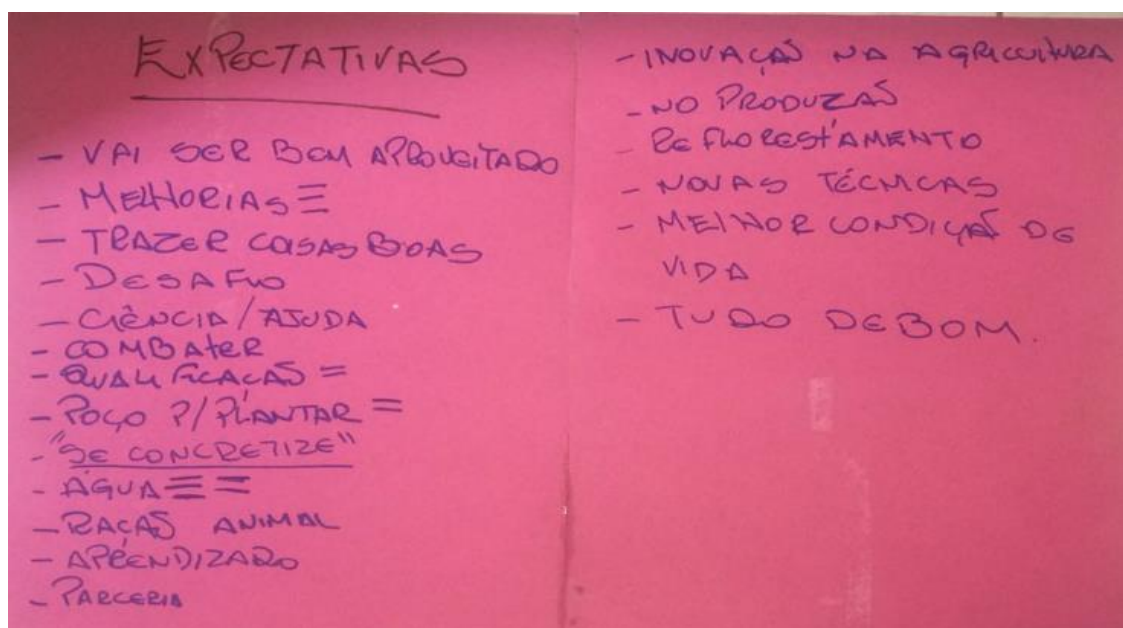 EXPECTATIVAS
- VAI SER BEM APROVEITADO
- MELHORIAS ☰
- TRAZER COISAS BOAS
- DESAFIO
- CIÊNCIA/AJUDA
- COMBATER
- QUALIFICAÇÃO =
- POÇO P/ PLANTAR =
- "SE CONCRETIZE"
- ÁGUA ☰ =
- RAÇÃO ANIMAL
- APRENDIZADO
- PARCERIA
- INOVAÇÃO NA AGRICULTURA
- NO PRODUZAÕ
- REFLORESTAMENTO
- NOVAS TÉCNICAS
- MELHOR CONDIÇÃO DE
VIDA
- TUDO DE BOM.